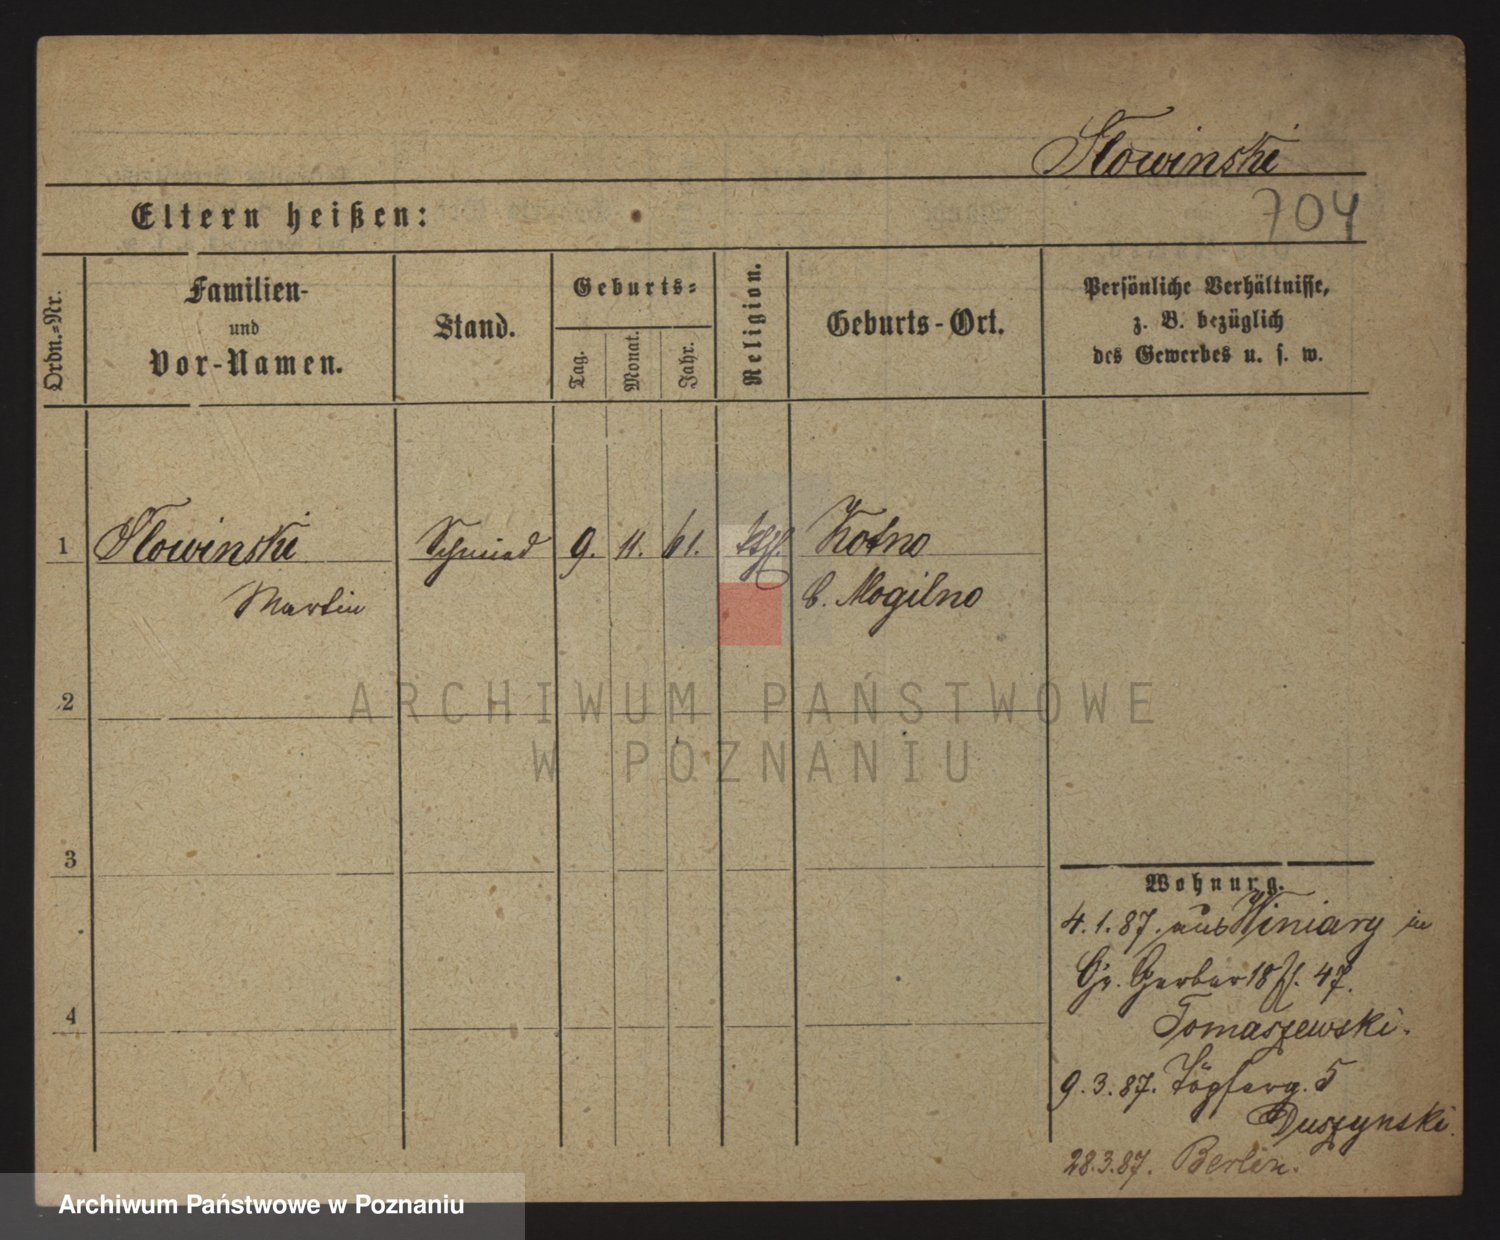 Slowinski
704
Eltern heißen:
Ordn.-Nr.
Familien-
und
Vor-Namen.
Stand.
Geburts-
Tag.
Monat.
Jahr.
Religion.
Geburts-Ort.
Persönliche Verhältnisse,
z. B. bezüglich
des Gewerbes u. s. w.
1 Slowinski Schmied 9. 11. 61. kth. Kotno
Martin b. Mogilno
2
3
4
ARCHIWUM PAŃSTWOWE
W POZNANIU
Wohnung.
4.1.87. aus Winiary in
Gr. Gerber 18 47.
Tomaszewski.
9.3.87. Töpferg. 5
Duszynski.
28.3.87. Berlin.
Archiwum Państwowe w Poznaniu